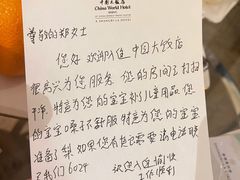 中国大饭店
China World Hotel
尊敬的郑女士
您好 欢迎入住 中国大饭店
很高兴为您服务 您的房间已打扫
干净 特意为您的宝宝补儿童用品 您
的宝宝嗓子不舒服 特意为您的宝宝
准备了梨 如果您有其它需要 请电话联
了我们6024
祝您入住愉快